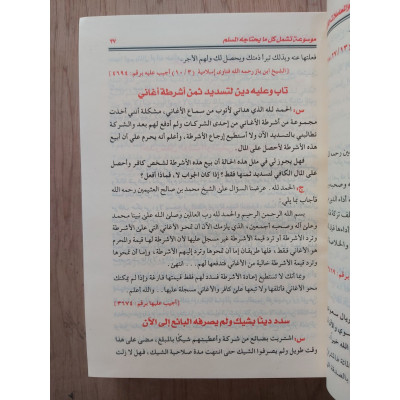 موسوعة تشمل كل ما يحتاجه المسلم
٢٤
فعلتها عنه وبذلك تبرأ ذمتك ويحصل لك ولهم الأجر.
(الشيخ ابن باز رحمه الله فتاوى إسلامية (١٠/٣) أجيب عليه برقم: ٤١٩٤)
تاب وعليه دين لتسديد ثمن أشرطة أغاني
س: الحمد لله الذي هداني لأتوب من سماع الأغاني، مشكلتي أنني أخذت
مجموعة من أشرطة الأغاني من إحدى الشركات ولم أدفع لهم بعد والشركة
تطالبني بالتسديد الآن ولا أستطيع إرجاع الأشرطة، وأعلم أنه يحرم علي بيع
هذه الأشرطة لأحصل على المال.
فهل يجوز لي في مثل هذه الحالة أن أبيع هذه الأشرطة لشخص كافر وأحصل
على المال الكافي لتسديد ثمنها فقط؟ إذا كان الجواب لا، فماذا أفعل؟
ج: الحمد لله. عرضنا السؤال على الشيخ محمد بن صالح العثيمين رحمه الله
فأجاب بما يلي:
بسم الله الرحمن الرحيم والحمد لله رب العالمين وصلى الله على نبينا محمد
وعلى آله وصحبه أجمعين، الذي أرى الآن أن تمحو الأغاني التي على الأشرطة
وترد الأشرطة أو ترد قيمة الأشرطة غير مسجل عليها لأن الأغاني محرمة ولا
قيمة لها شرعاً، فإما أن تمحوها ثم تردها إليهم الأشرطة، وإما أن
ترد قيمة الأشرطة خالية من الأغاني فتدفعها لهم...، انتهى.
وبما أنك لا تستطيع إعادة الأشرطة فسدد لهم فقط قيمتها فارغة وإذا لم يمكنك
محو الأغاني فأتلفها ولا تبعها على كافر والأغاني مسجلة عليها... والله أعلم.
(أجيب عليها برقم: ٣٩٧٤)
سدد ديناً بشيك ولم يصرفه البائع إلى الآن
س: اشتريت بضائع من شركة وأعطيتهم شيكاً بالمبلغ، مضى على هذا
وقت طويل ولم يصرفوا الشيك حتى انتهت مدة صلاحية الشيك، فهل لا زلت